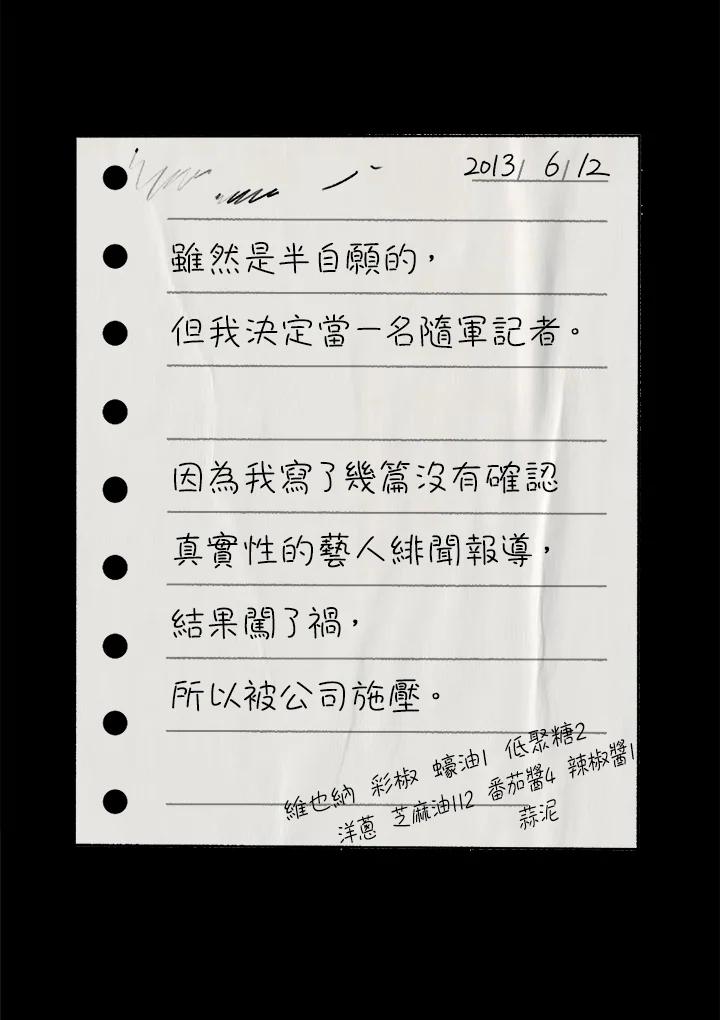 2013/ 6/ 12
雖然是半自願的，
但我決定當一名隨軍記者。
因為我寫了幾篇沒有確認
真實性的藝人緋聞報導，
結果闖了禍，
所以被公司施壓。
維也納 彩椒 蠔油1 低聚糖2
洋蔥 芝麻油1/2 番茄醬4 辣椒醬1
蒜泥